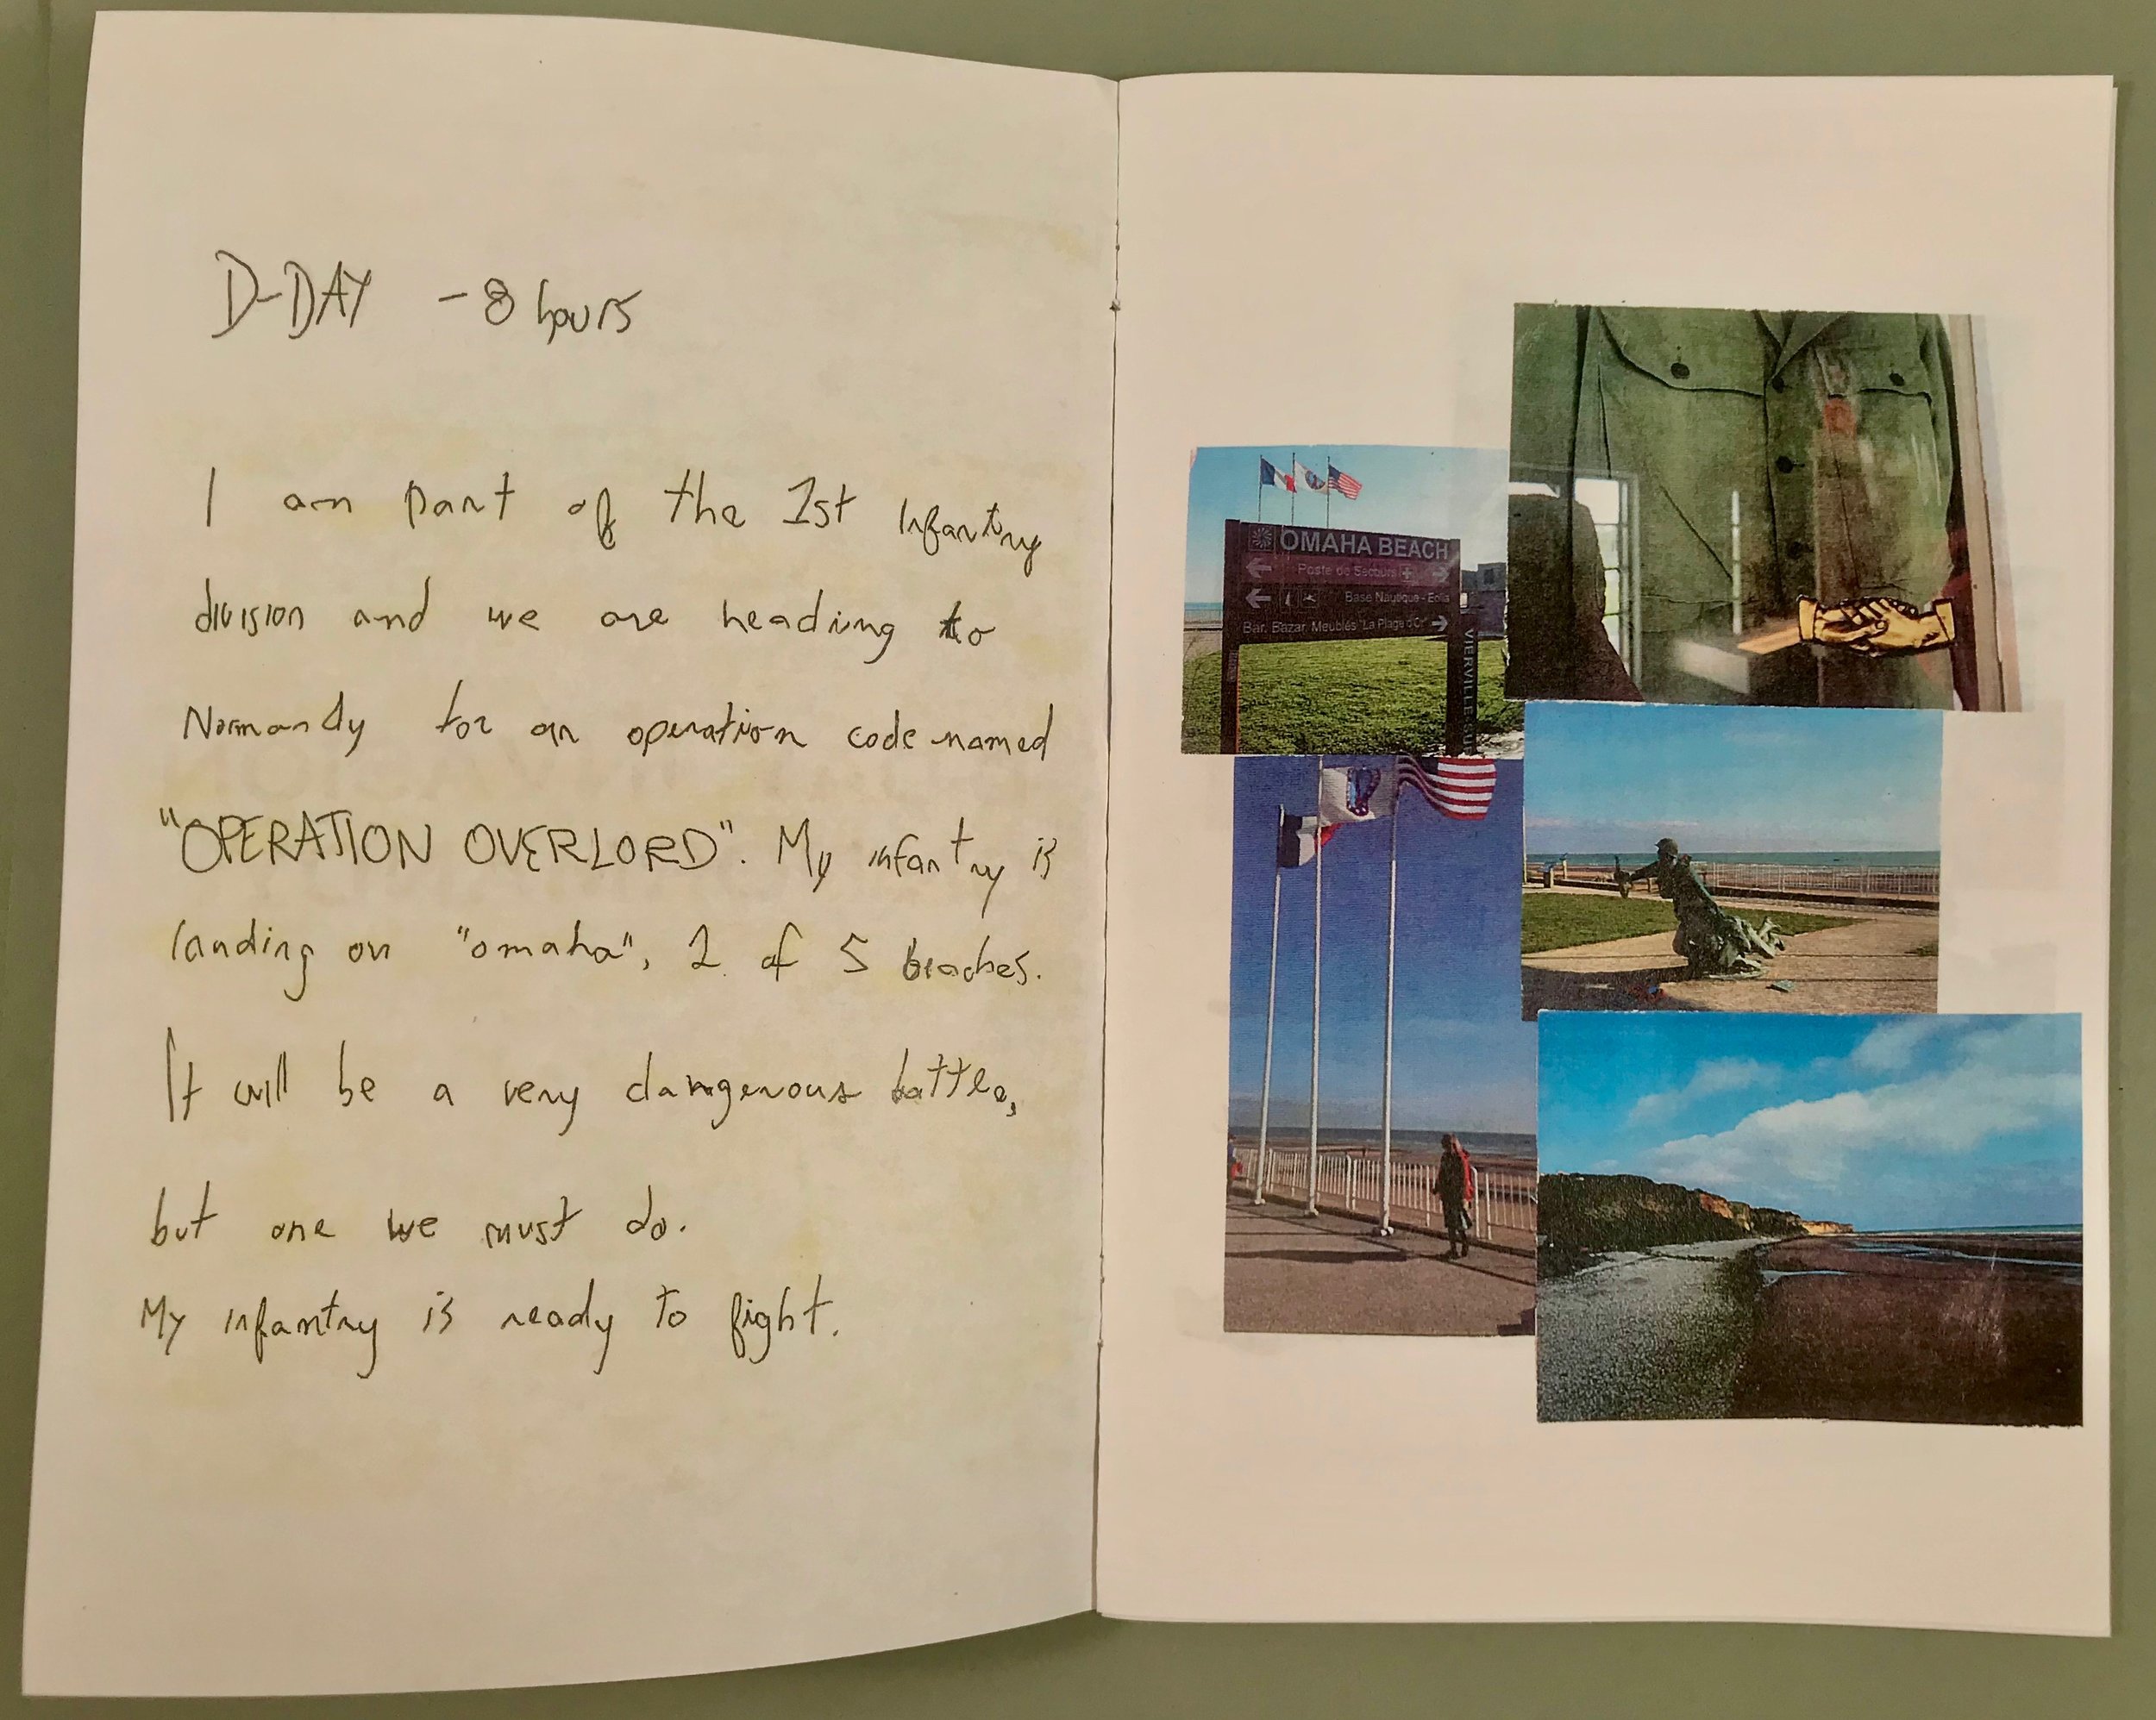 D-DAY - 8 hours
I am part of the 1st Infantry
division and we are heading to
Normandy for an operation code named
"OPERATION OVERLORD". My infantry is
landing on "omaha", 1 of 5 beaches.
It will be a very dangerous battle,
but one we must do.
My infantry is ready to fight.
OMAHA BEACH
Poste de Secours
Base Nautique - Eolia
Bar, Bazar, Meublés "La Plage d'Or"